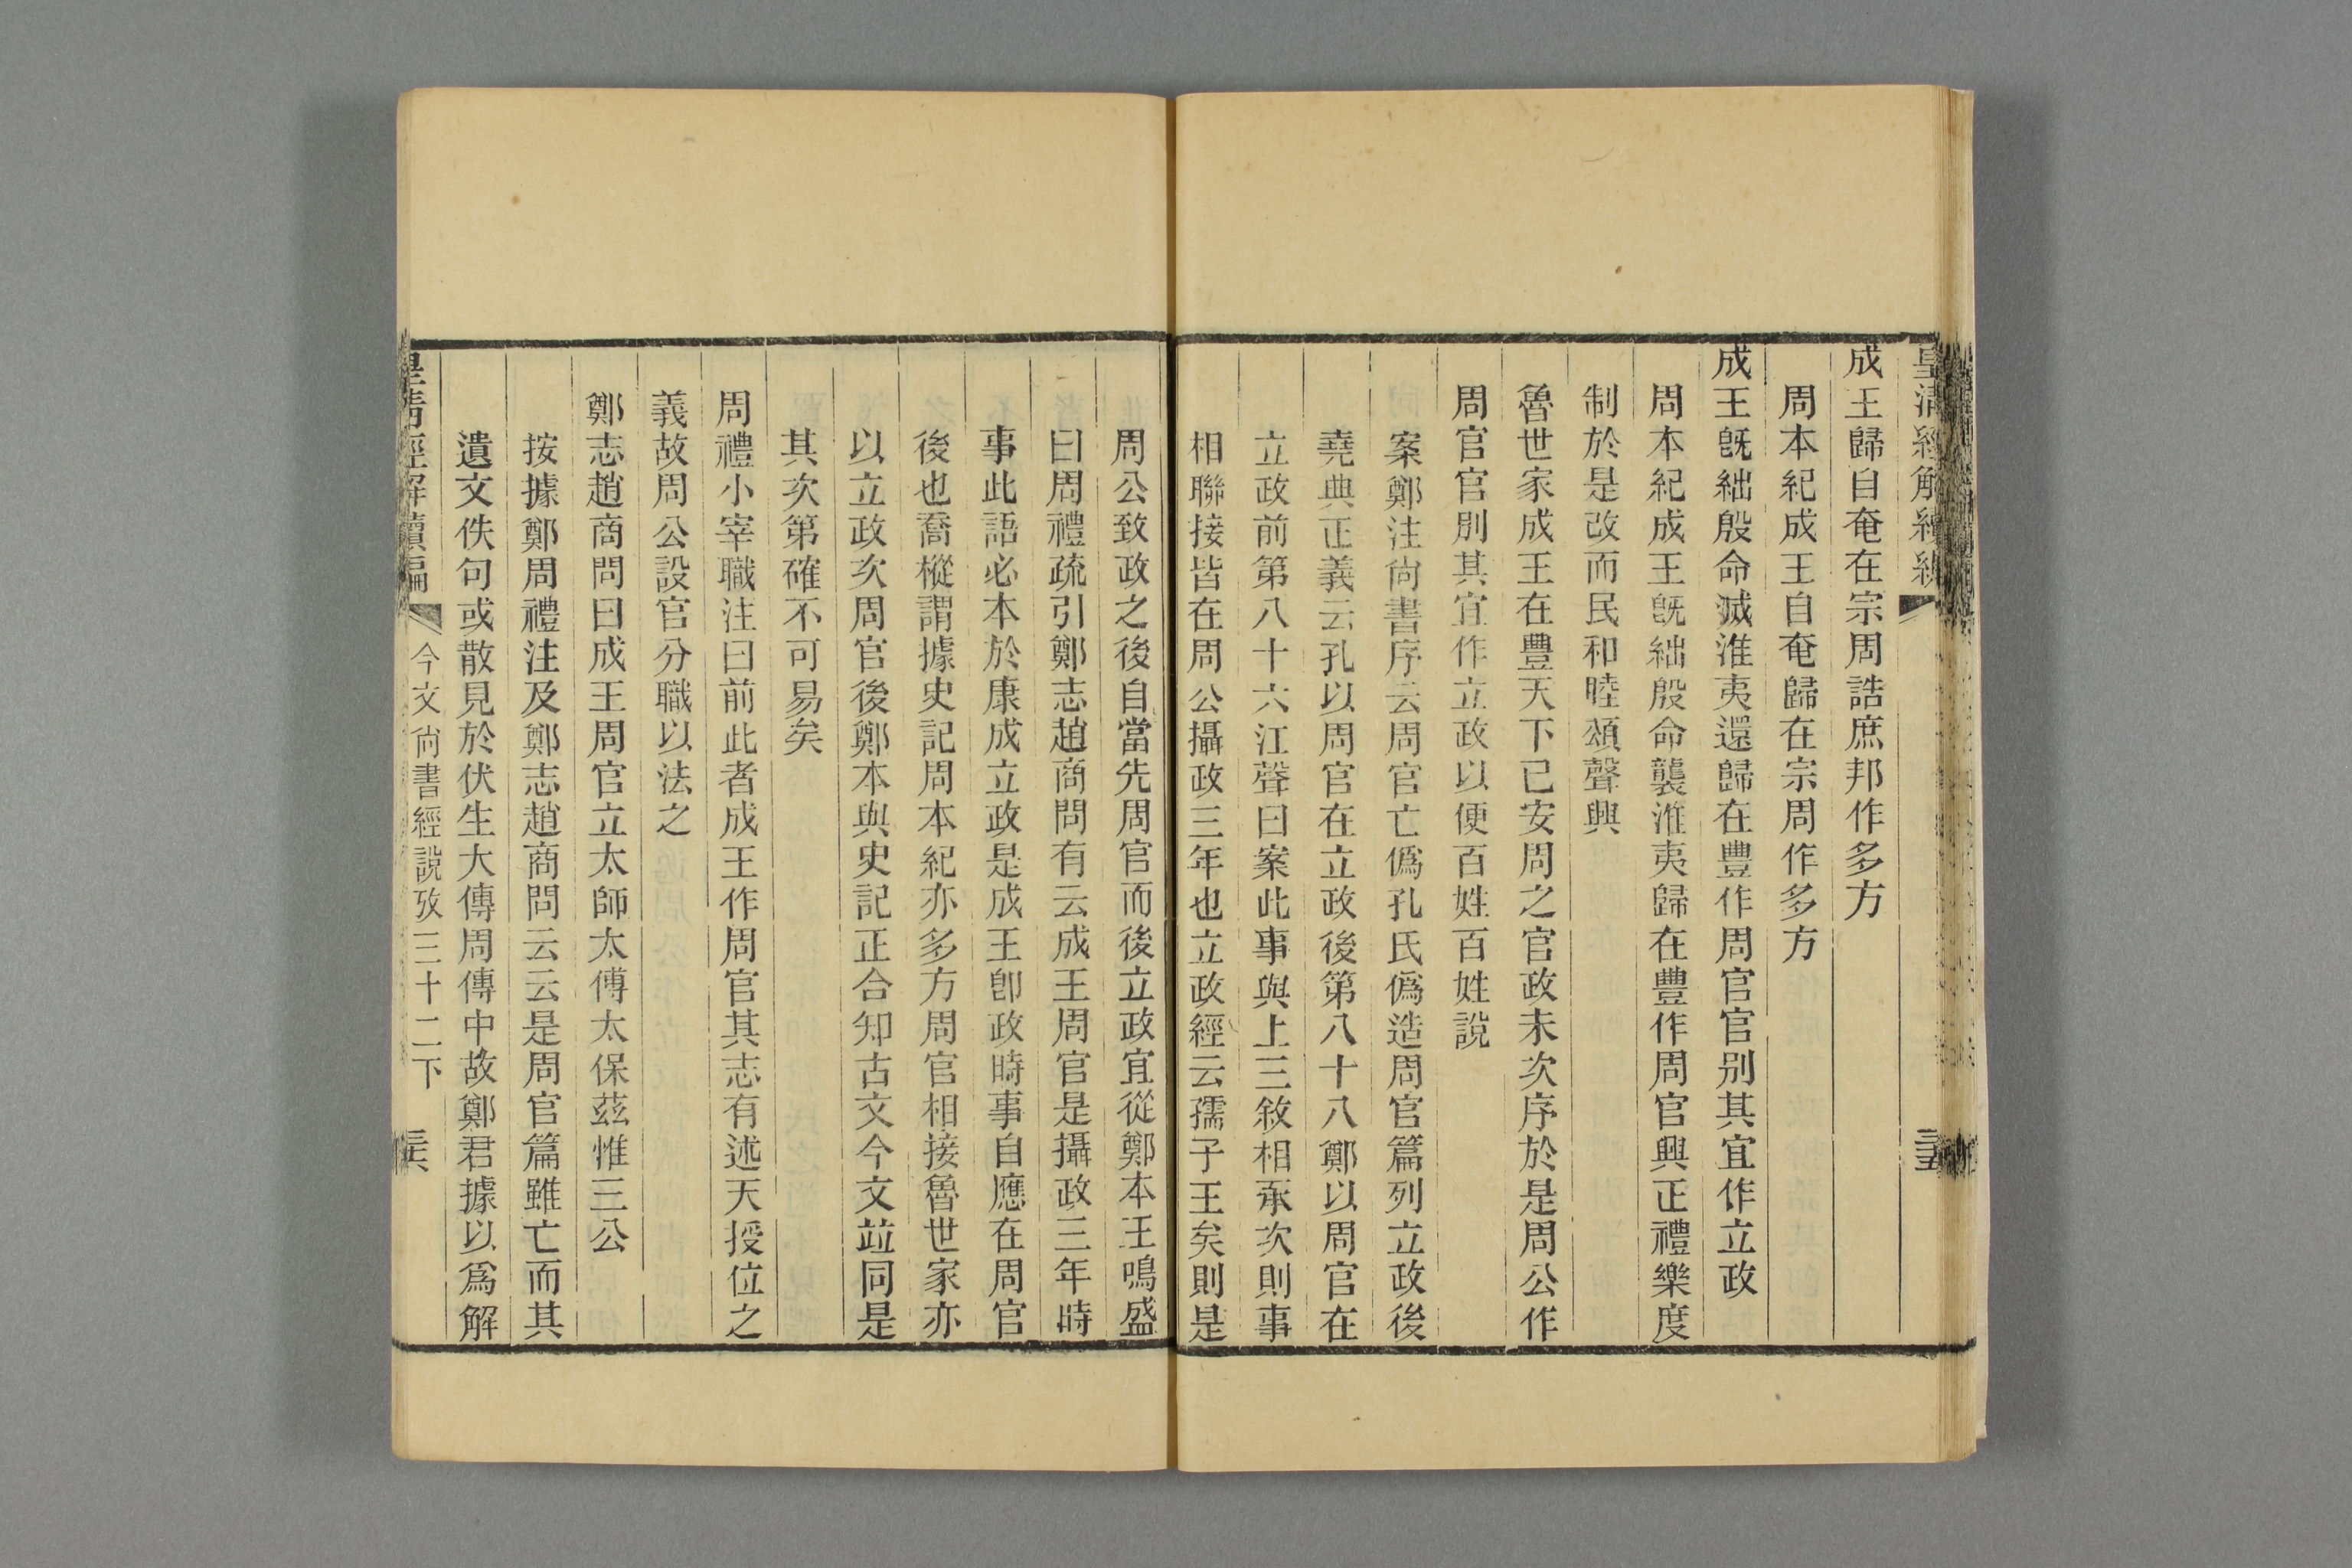 成王歸自奄在宗周誥庶邦作多方
周本紀成王自奄歸在宗周作多方
成王旣絀殷命滅淮夷還歸在豐作周官官别其宜作立政
周本紀成王旣絀殷命襲淮夷歸在豐作周官興正禮樂度
制於是改而民和睦頌聲興
魯世家成王在豐天下已安周之官政未次序於是周公作
周官官別其宜作立政以便百姓百姓説
案鄭注尙書序云周官亡僞孔氏僞造周官篇列立政後
堯典正義云孔以周官在立政後第八十八鄭以周官在
立政前第八十六江聲曰案此事與上三敘相承次則事
相聯接皆在周公攝政三年也立政經云孺子王矣則是
周公致政之後自當先周官而後立政宜從鄭本王鳴盛
曰周禮疏引鄭志趙商問有云成王周官是攝政三年時
事此語必本於康成立政是成王卽政時事自應在周官
後也喬樅謂據史記周本紀亦多方周官相接魯世家亦
以立政次周官後鄭本與史記正合知古文今文竝同是
其次第確不可易矣
周禮小宰職注曰前此者成王作周官其志有述天授位之
義故周公設官分職以法之
鄭志趙商問曰成王周官立太師太傅太保茲惟三公
按據鄭周禮注及鄭志趙商問云云是周官篇雖亡而其
遺文佚句或散見於伏生大傳周傳中故鄭君據以爲解
皇清經解續編
今文尙書經說攷三十二下